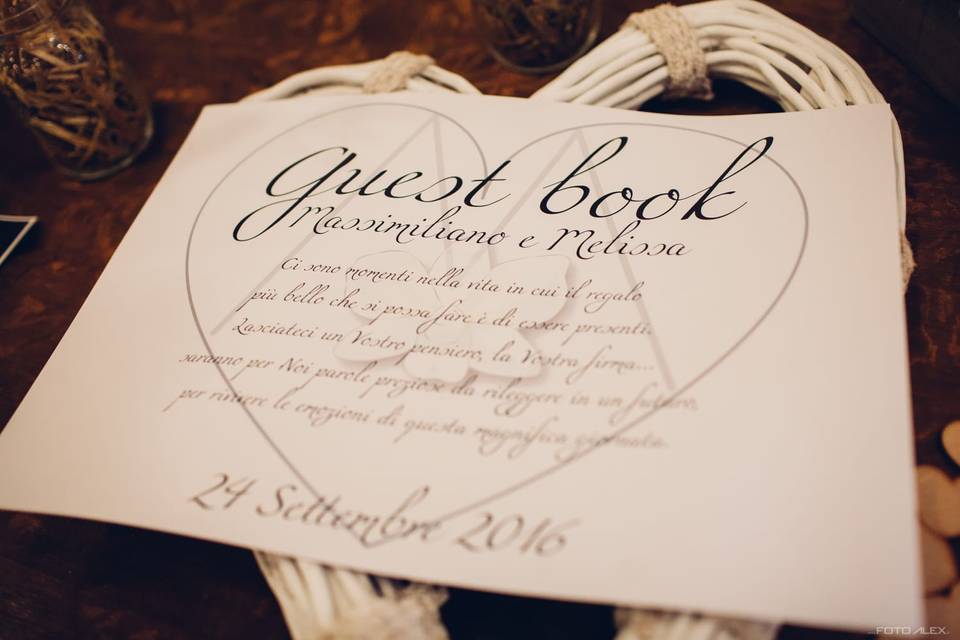 Guest book
Massimiliano e Melissa
Ci sono momenti nella vita in cui il regalo
più bello che si possa fare è di essere presenti.
Lasciateci un Vostro pensiero, la Vostra firma...
saranno per Noi parole preziose da rileggere in un futuro,
per rivivere le emozioni di questa magnifica giornata.
24 Settembre 2016
...FOTO ALEX..